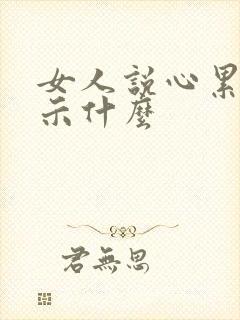 女人説心累
示什麼
君無思